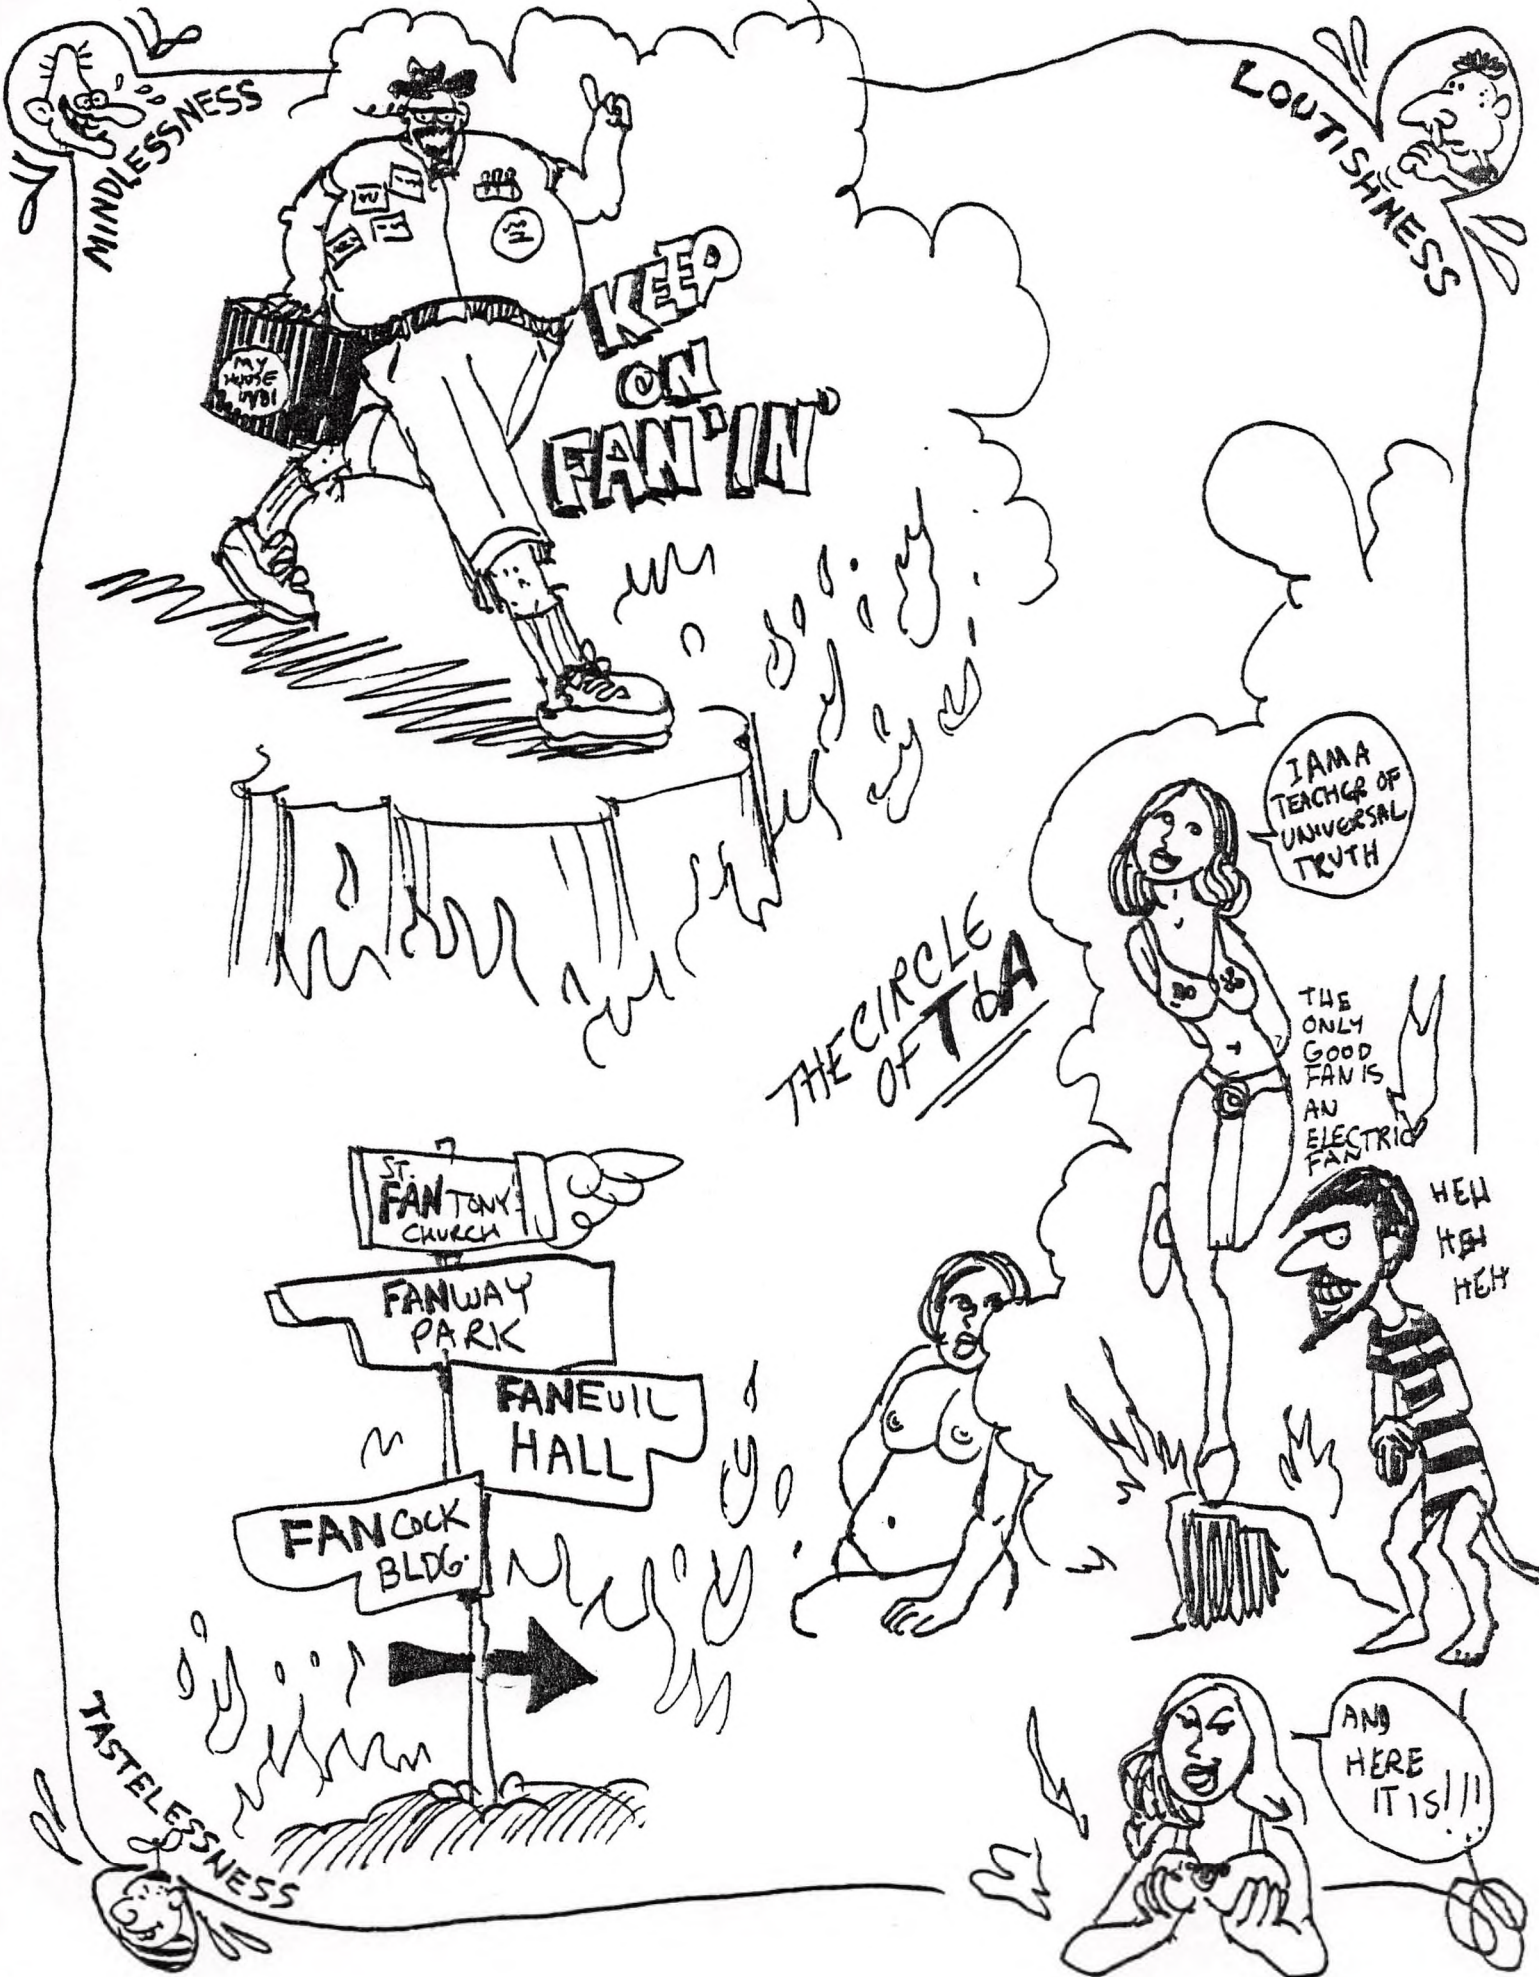 MINDLESSNESS
LOUTISHNESS
KEEP
ON
FAN'IN'
MY
HOUSE
I AM A
TEACHER OF
UNIVERSAL
TRUTH
THE CIRCLE
OF T&A
THE
ONLY
GOOD
FAN IS
AN
ELECTRIC
FAN
HEH
HEH
HEH
ST.
FANTONY
CHURCH
FANWAY
PARK
FANEUIL
HALL
FANCOCK
BLDG.
TASTELESSNESS
AND
HERE
IT IS!!!